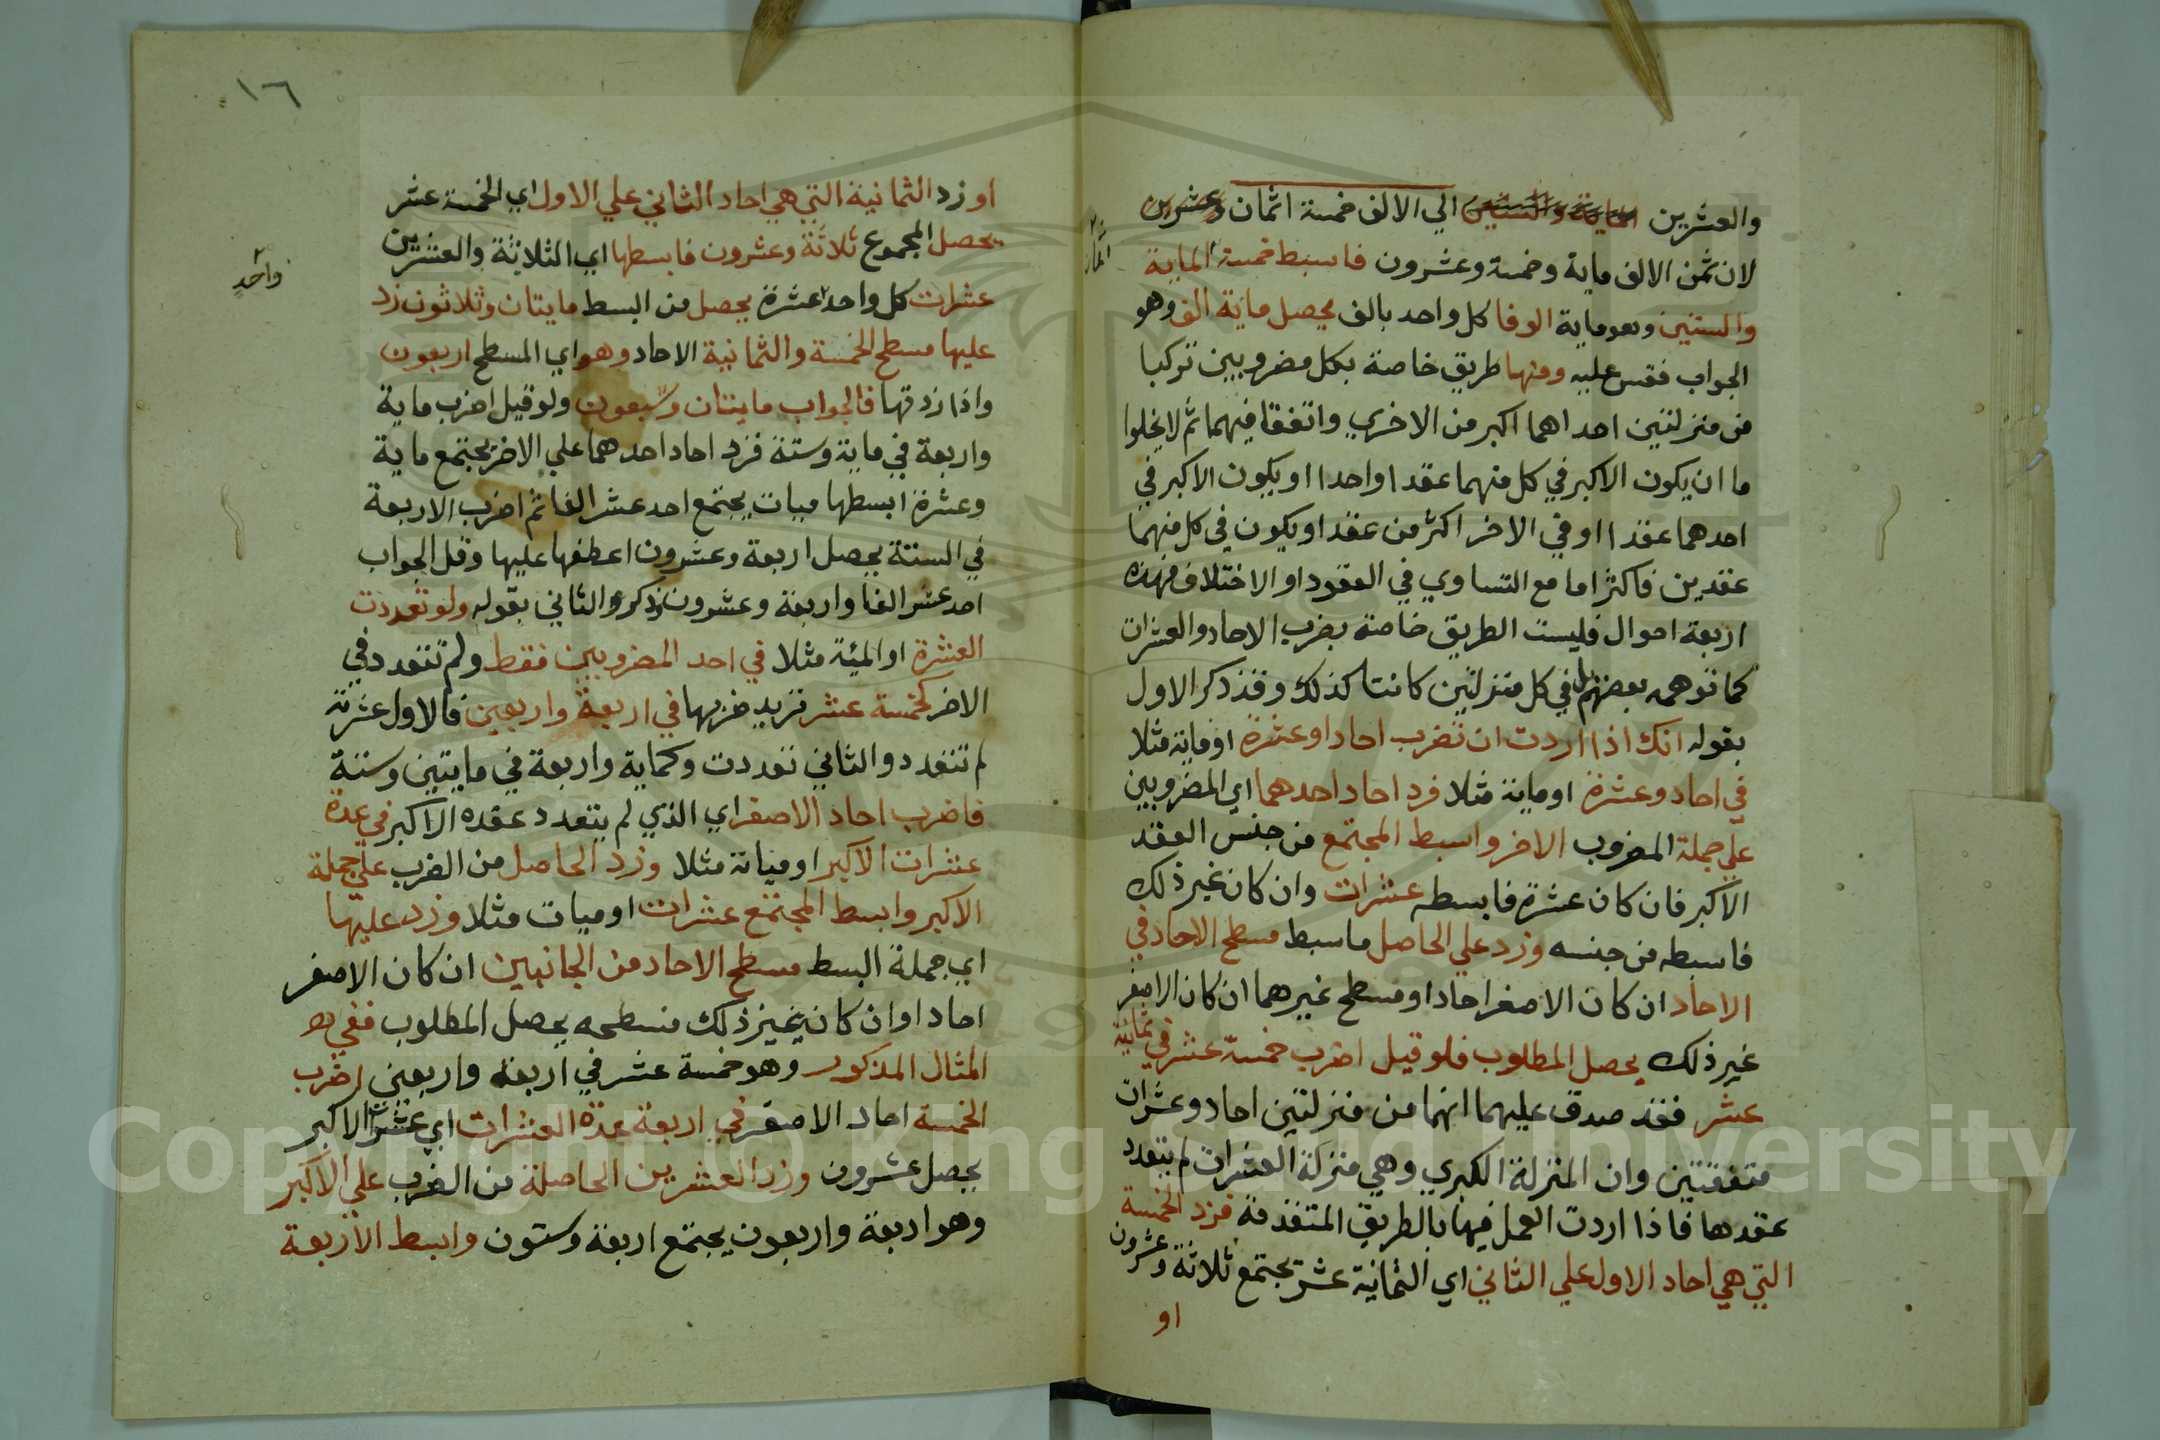 والعشرين الماية والستين الي الالف خمسة اثمان وعشرين
لان ثمن الالف ماية وخمسة وعشرون فابسط خمسة الماية
اثمان
والستين وهو ماية الوفا كل واحد بالف يحصل ماية الف وهو
الجواب فقس عليه ومنها طريق خاصة بكل مضروبين تركبا
من منزلتين احداهما اكبر من الاخري واتفقا فيهما ثم لا يخلوا
ما ان يكون الاكبر في كل منهما عقدا واحدا او يكون الاكبر في
احدهما عقدا او في الاخر اكثر من عقد او يكون في كل منهما
عقدين فاكثر اما مع التساوي في العقود او الاختلاف فهذه
اربعة احوال فليست الطريق خاصة بضرب الاحاد والعشرات
كما توهمه بعضهم بل في كل منزلتين كانتا كذلك وقد ذكر الاول
بقوله انك اذا اردت ان تضرب احاد او عشرة او ماية مثلا
في احاد وعشرة او ماية مثلا فزد احاد احدهما اي المضروبين
علي جملة المضروب الاخر وابسط المجتمع من جنس العقد
الاكبر فان كان عشرة فابسطه عشرات وان كان غير ذلك
فابسطه من جنسه وزد علي الحاصل مابسط مسطح الاحاد في
الاحاد ان كان الاصغر احادا او مسطح غيرهما ان كان الاصغر
غير ذلك يحصل المطلوب فلو قيل اضرب خمسة عشر في ثمانية
عشر فقد صدق عليهما انهما من منزلتين احاد وعشرات
متفقتين وان المنزلة الكبري وهي منزلة العشرات لم يتعدد
عقدها فاذا اردت العمل فيها بالطريق المتقدمة فزد الخمسة
التي هي احاد الاول علي الثاني اي الثمانية عشر يجتمع ثلاثة وعشرون
او
١٦
او زد الثمانية التي هي احاد الثاني علي الاول اي الخمسة عشر
يحصل المجموع ثلاثة وعشرون فابسطها اي الثلاثة والعشرين
واحد
عشرات كل واحد عشرة يحصل من البسط مايتان وثلاثون زد
عليها مسطح الخمسة والثمانية الاحاد وهو اي المسطح اربعون
واذا زدتها فالجواب مايتان وسبعون ولو قيل اضرب ماية
واربعة في ماية وستة فزد احاد احدهما علي الاخر يجتمع ماية
وعشرة ابسطها ميات يجتمع احد عشر الفا ثم اضرب الاربعة
في الستة يحصل اربعة وعشرون اعطفها عليها وقل الجواب
احد عشر الفا واربعة وعشرون وذكر الثاني بقوله ولو تعددت
العشرة او المئة مثلا في احد المضروبين فقط ولم تتعدد في
الاخر كخمسة عشر تريد ضربها في اربعة واربعين فالاول عشرته
لم تتعدد والثاني تعددت وكماية واربعة في مايتين وستة
فاضرب احاد الاصغر اي الذي لم يتعدد عقده الاكبر في عدة
عشرات الاكبر او مياته مثلا وزد الحاصل من الضرب علي جملة
الاكبر وابسط المجتمع عشرات او ميات مثلا وزد عليها
اي جملة البسط مسطح الاحاد من الجانبين ان كان الاصغر
احادا وان كان غير ذلك فسطحه يحصل المطلوب ففي
المثال المذكور وهو خمسة عشر في اربعة واربعين اضرب
الخمسة احاد الاصغر في اربعة عدة العشرات اي عشرات الاكبر
يحصل عشرون وزد العشرين الحاصلة من الضرب علي الاكبر
وهو اربعة واربعون يجتمع اربعة وستون وابسط الاربعة
Copyright © King Saud University